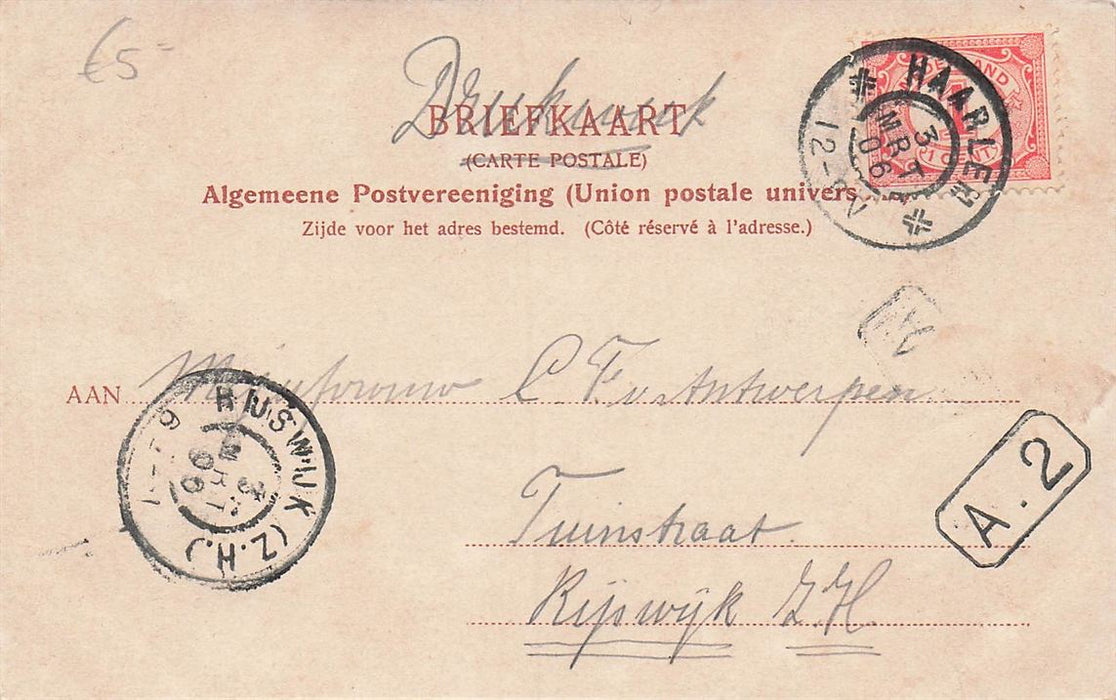 €5=
Drukwerk
BRIEFKAART
(CARTE POSTALE)
Algemeene Postvereeniging (Union postale univers
Zijde voor het adres bestemd. (Côté réservé à l'adresse.)
NEDERLAND
1 CENT
HAARLEM
3 MRT 06
12-1N
AAN Mejufvrouw C F v Antwerpen
Tuinstraat
Rijswijk Z.H
RIJSWIJK (Z.H.)
3 MRT 06
A.2